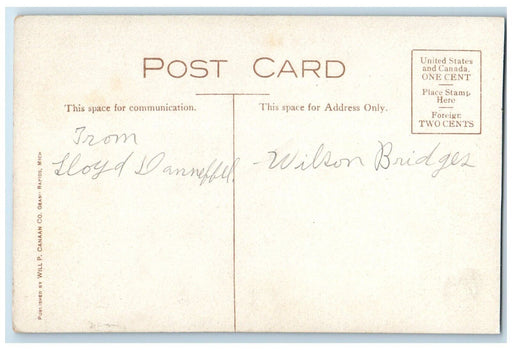 POST CARD
United States
and Canada,
ONE CENT
Place Stamp
Here
Foreign
TWO CENTS
This space for communication.
This space for Address Only.
From
Lloyd
Wilson Bridges
PUBLISHED BY WILL P. CANAAN CO. GRAND RAPIDS, MICH